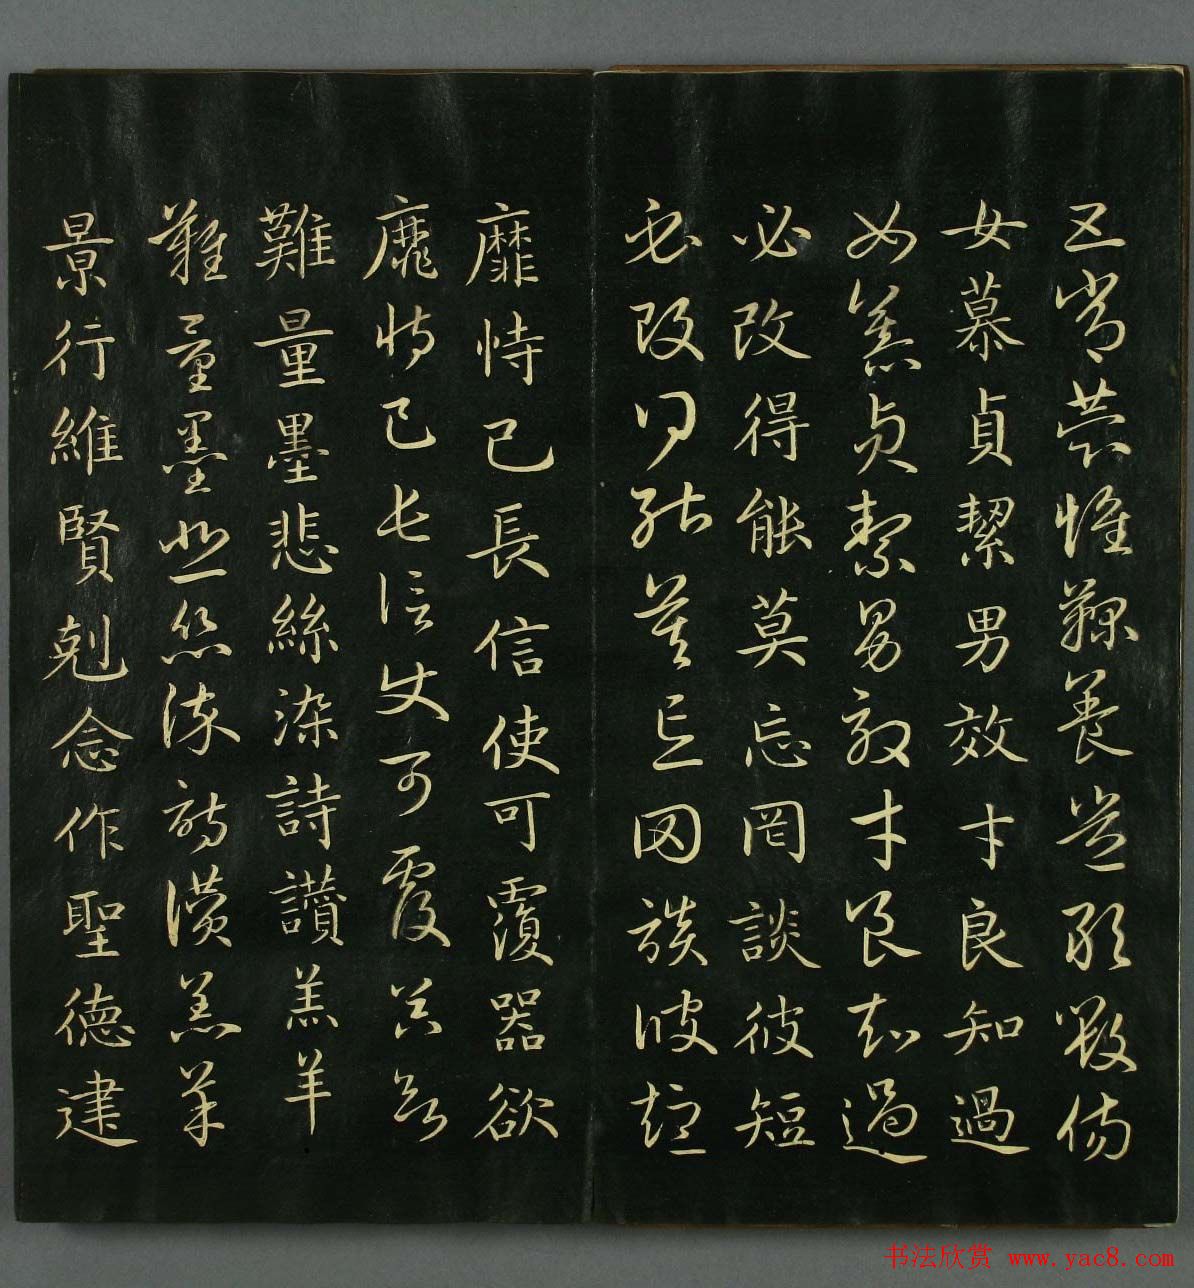 五常恭惟鞠養豈敢毀傷
女慕貞絜男效才良知過
女慕貞絜男效才良知過
必改得能莫忘罔談彼短
必改得能莫忘罔談彼短
靡恃己長信使可覆器欲
靡恃己長信使可覆器欲
難量墨悲絲染詩讚羔羊
難量墨悲絲染詩讚羔羊
景行維賢剋念作聖德建
书法欣赏 www.yac8.com